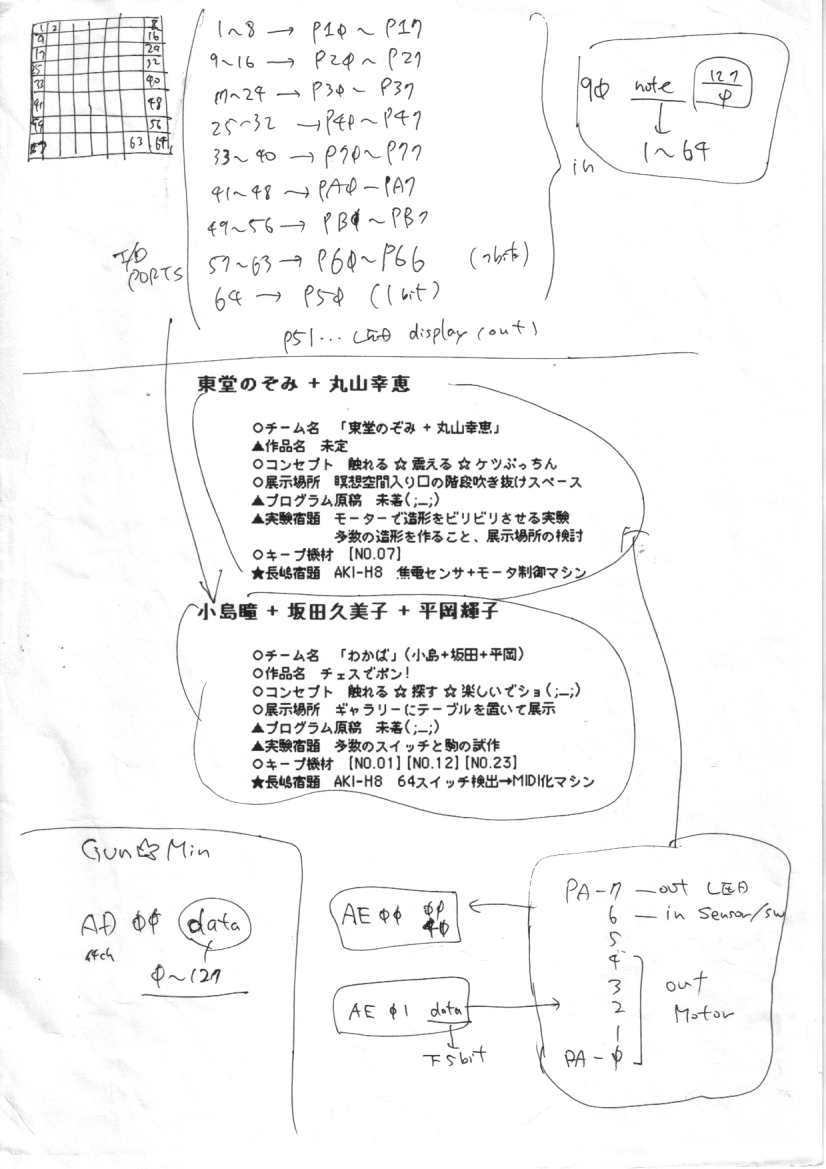 1 2 8
9 16
17 24
25 32
33 40
41 48
49 56
57 63 64
1~8 → P1φ ~ P17
9~16 → P2φ ~ P27
17~24 → P3φ ~ P37
25~32 → P4φ ~ P47
33~40 → P7φ ~ P77
41~48 → PAφ ~ PA7
49~56 → PBφ ~ PB7
57~63 → P6φ ~ P66 (7bit)
64 → P5φ (1bit)
I/O PORTS
P51... LED display (out)
in
9φ note 127/φ
1~64
東堂のぞみ + 丸山幸恵
○チーム名 「東堂のぞみ + 丸山幸恵」
▲作品名 未定
○コンセプト 触れる ☆ 震える ☆ ケツぷっちん
○展示場所 瞑想空間入り口の階段吹き抜けスペース
▲プログラム原稿 未着(;_;)
▲実験宿題 モーターで造形をビリビリさせる実験
多数の造形を作ること、展示場所の検討
○キープ機材 [NO.07]
★長嶋宿題 AKI-H8 焦電センサ+モータ制御マシン
小島瞳 + 坂田久美子 + 平岡輝子
○チーム名 「わかば」(小島+坂田+平岡)
○作品名 チェスでポン!
○コンセプト 触れる ☆ 探す ☆ 楽しいでショ(;_;)
○展示場所 ギャラリーにテーブルを置いて展示
▲プログラム原稿 未着(;_;)
▲実験宿題 多数のスイッチと駒の試作
○キープ機材 [NO.01] [NO.12] [NO.23]
★長嶋宿題 AKI-H8 64スイッチ検出→MIDI化マシン
Gun☆Min
AD φφ data
φ~127
AE φφ
AE φ1 data
下5bit
PA-7 — out LED
6 — in Sensor/sw
5
4
3 out
2 Motor
1
PA-φ